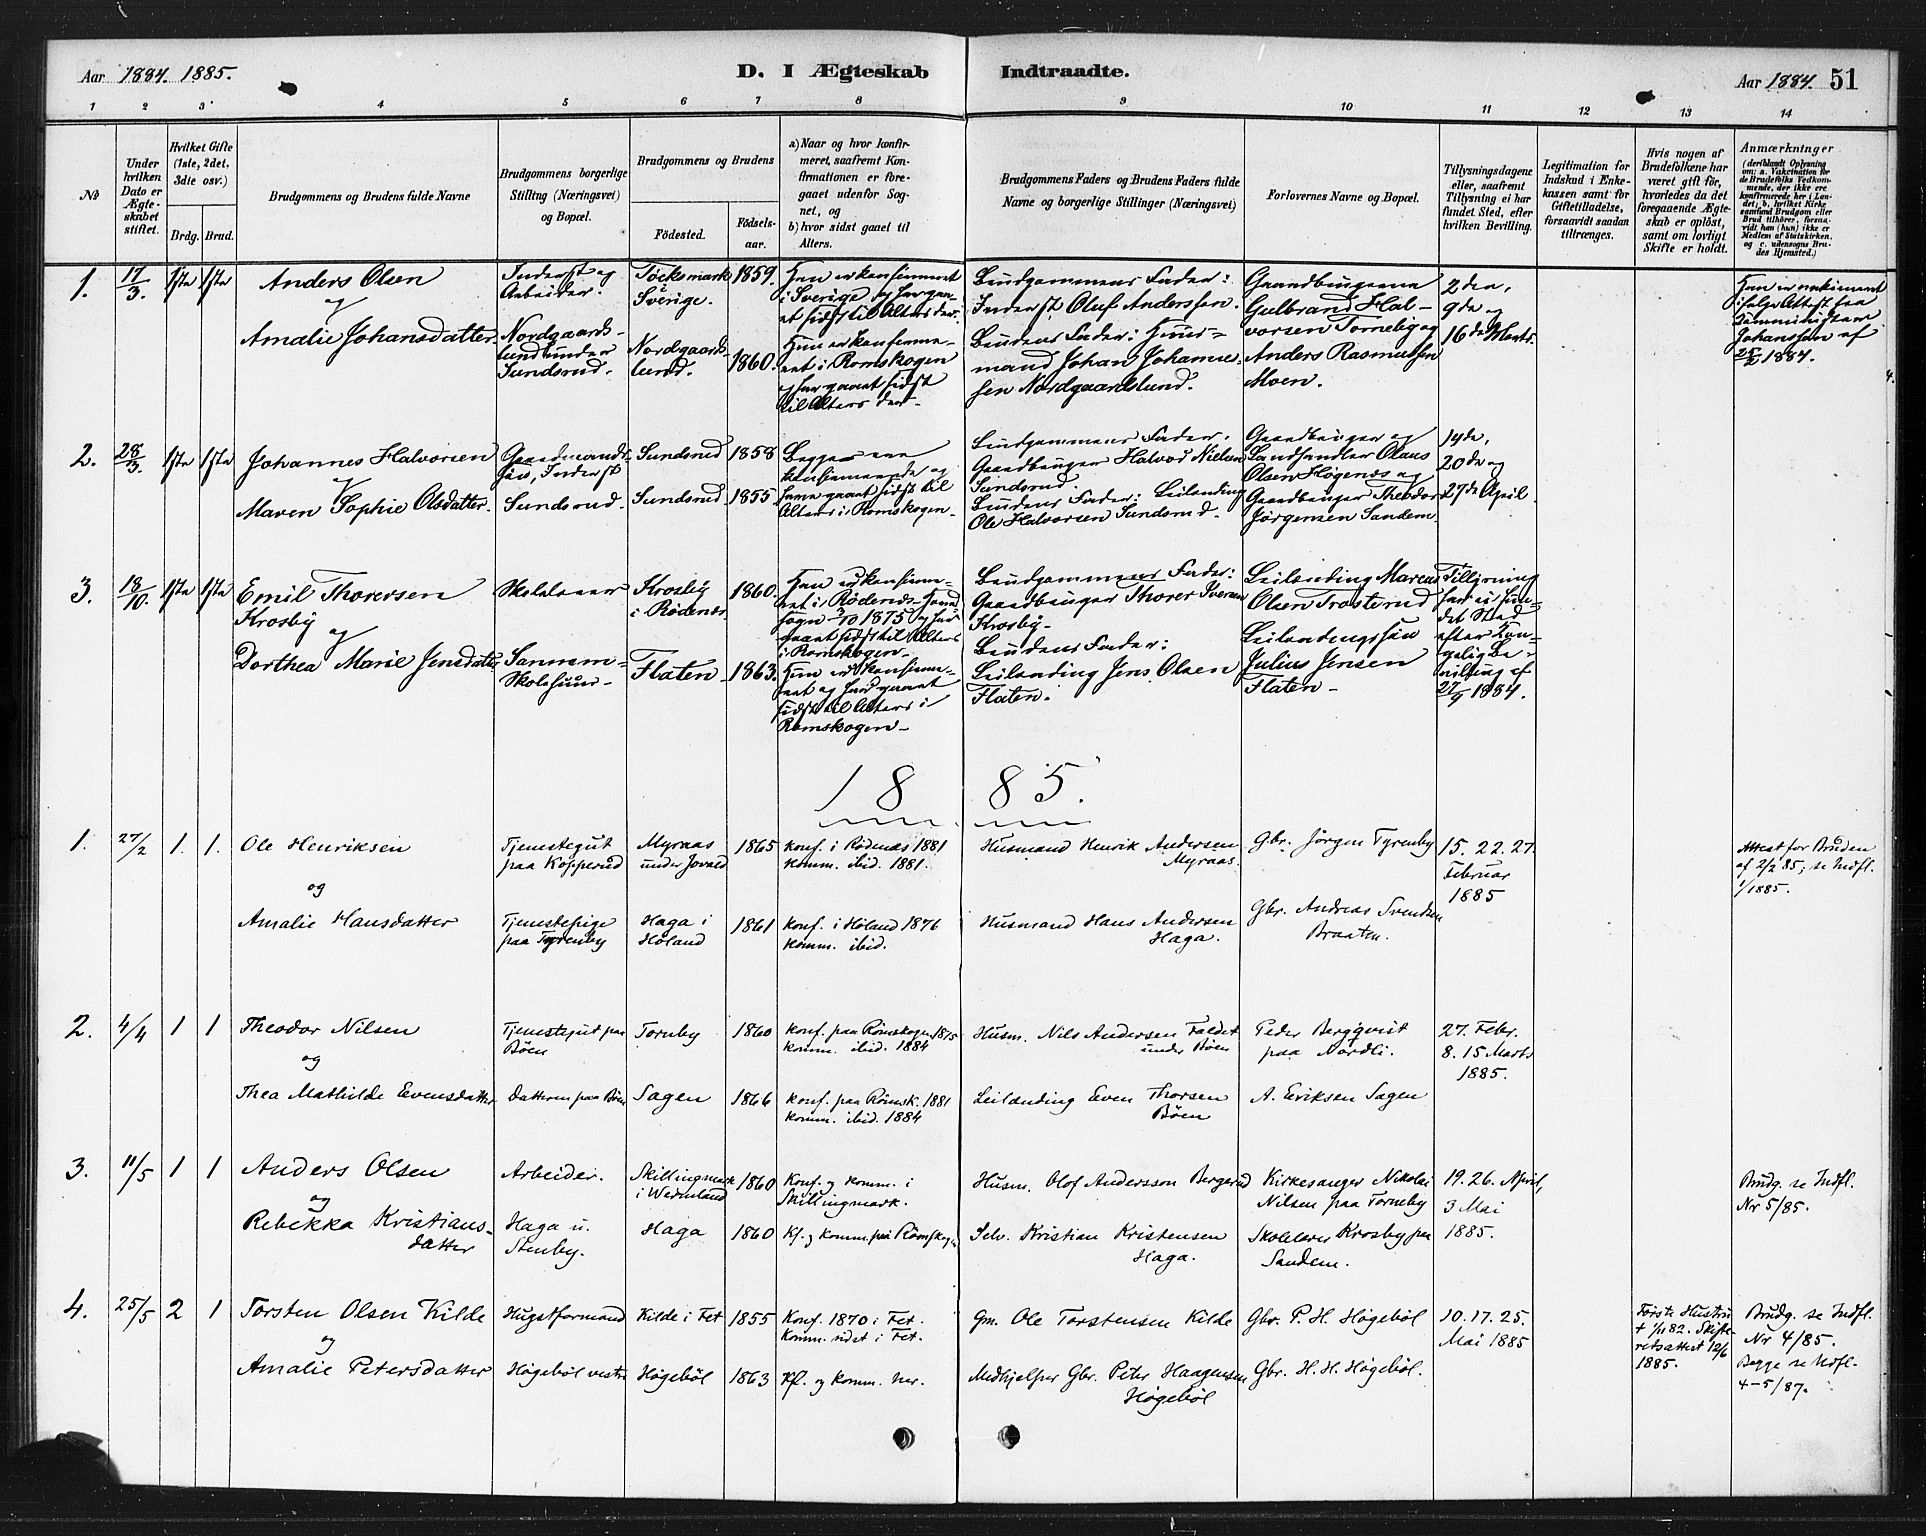 Aar 1884. 1885.
D. I Ægteskab Indtraadte.
Aar 1884. 51
1 2 3 4 5 6 7 8 9 10 11 12 13 14
No
Under hvilken Dato er Ægteskabet stiftet.
Hvilket Gifte (1ste, 2det, 3die osv.)
Brdg. Brud.
Brudgommens og Brudens fulde Navne
Brudgommens borgerlige Stilling (Næringsvei) og Bopæl.
Brudgommens og Brudens
Fødested. Fødselsaar.
a) Naar og hvor konfirmeret, saafremt Konfirmationen er foregaaet udenfor Sognet, og
b) hvor sidst gaaet til Alters.
Brudgommens Faders og Brudens Faders fulde Navne og borgerlige Stillinger (Næringsvei)
Forlovernes Navne og Bopæl.
Tillysningsdagene eller, saafremt Tillysning ei har fundet Sted, efter hvilken Bevilling.
Legitimation for Indskud i Enkekassen samt for Giftetilladelse, forsaavidt saadan tiltrænges.
Hvis nogen af Brudefolkene har været gift før, hvorledes da det foregaaende Ægteskab er opløst, samt om lovligt Skifte er holdt.
Anmærkninger
(deriblandt Oplysning om: a. Vakcination for de Brudefolks Vedkommende, der ikke ere konfirmerede her i Landet; b. hvilket Kirkesamfund Brudgom eller Brud tilhører, forsaavidt han (hun) ikke er Medlem af Statskirken, og c. udensogns Brudes Hjemsted.)
1. 17/3. 1ste 1ste
Anders Olsen
og
Amalie Johansdatter
Inderst og
Arbeider.
Nordgaards-
lund under
Sundsrud.
Töcksmark
i Sverige.
1859.
Nordgaards-
lund.
1860.
Han er konfirmeret
i Sverige og har gaa-
et sidst til Alters der.
Hun er konfirme-
ret i Romskogen
og har gaaet sidst
til Alters der.
Brudgommens Fader:
Inderst Oluf Anderssen.
Brudens Fader: Huus-
mand Johan Johannes-
sen Nordgaardslund.
Gaardbrugerne
Gulbrand Hal-
vorsen Torneby og
Anders Rasmussen
Moen.
2den,
9de og
16de Marts.
Han er vakcineret
ifølge Attest fra
Johanssen af
25/2 1884.
2. 28/3. 1ste 1ste
Johannes Halvorsen
og
Maren Sophie Olsdatter
Gaardmands-
søn, Inderst
Sundsrud.
Sundsrud 1858
Sundsrud 1855
Begge ere
konfirmerede og
have gaaet sidst til
Alters i Romskogen
Brudgommens Fader:
Gaardbruger Halvor Nielsen
Sundsrud.
Brudens Fader: Leilending
Ole Halvorsen Sundsrud.
Gaardbruger og
Landhandler Olaus
Olsen Høgenæs og
Gaardbruger Theodor
Jørgensen Sandem.
14de,
20de og
27de April
3. 18/10. 1ste 1ste
Emil Thorersen
Krosby
og
Dorthea Marie Jensdatter
Skolelærer
Sannem-
Skolehuus
Krosby
i Rødenes
1860.
Flaten 1863.
Han er konfirme-
ret i Rødenes Hoved-
sogn 3/10 1875 og har
gaaet sidst til Alters
i Romskogen
Hun er konfirme-
ret og har gaaet
sidst til Alters i
Romskogen
Brudgommens Fader:
Gaardbruger Thorer Iversen
Krosby.
Brudens Fader:
Leilending Jens Olsen
Flaten.
Leilending Marcus
Olsen Trosterud
Leilendingssøn
Julius Jensen
Flaten
Tillysning
har ei fun-
det Sted
efter Kon-
gelig Be-
villing af
27/9 1884.
1885.
1. 27/2 1. 1.
Ole Henriksen
og
Amalie Hansdatter
Tjenestegut
paa Kopperud
Tjenestepige
paa Tyrenby
Myraas
under Jovald
1865
Haga i
Høland
1861
konf. i Rødenæs 1881
komm. ibid. 1881.
konf. i Høland 1876
komm. ibid.
Husmand Henrik Andersen
Myraas.
Husmand Hans Andersen
Haga.
Gbr. Jørgen Tyrenby
Gbr. Andreas Svendsen
Braaten.
15. 22. 27.
Februar
1885
Attest for Bruden
af 2/2 85; se Indfl.
1/1885.
2. 4/4 1 1
Theodor Nilsen
og
Thea Mathilde Evensdatter
Tjenestegut paa
Böen
Datteren paa Böen
Tornby 1860
Sagen 1866
konf. paa Rømskogen 1875
komm. ibid. 1884
konf. paa Rømsk. 1881
komm. ibid. 1884
Husm. Nils Andersen Faldet
under Böen
Leilænding Even Thorsen
Böen
Peder Bergqvist
paa Nordli.
A. Eriksen Sagen
27. Febr.
8. 15 Marts
1885.
3. 11/5 1 1
Anders Olsen
og
Rebekka Kristians-
datter
Arbeider.
Haga u.
Stenby.
Skillingmark
i Wermland
1860
Haga 1860
Konf. og komm. i
Skillingmark.
Kf. og komm. paa Rømskogen
Husm. Olof Andersson Bergerud
Selv. Kristian Kristensen
Haga.
Kirkesanger Nikolai
Nilsen paa Torneby
Skolelærer Krosby paa
Sandem.
19. 26. April,
3 Mai
1885.
Brudg. se Indfl.
Nr 5/85.
4. 25/5 2 1
Torsten Olsen Kilde
og
Amalie Petersdatter
Hugstformand
Høgebøl vestre
Kilde i Fet 1855
Høgebøl 1863
Konf. 1870 i Fet.
Komm. sidst i Fet.
Kfl. og komm. her.
Gm. Ole Torstensen Kilde
Medhjelper Gbr. Peter Haagensen
Høgebøl
Gbr. P. H. Høgebøl
Gbr. H. H. Høgebøl.
10. 17. 25.
Mai 1885
Første Hustru
+ 1/11 82. Skifte-
retsattest 12/6
1885.
Brudg. se Indfl.
Nr 4/85.
Begge se Udfl.
4-5/87.